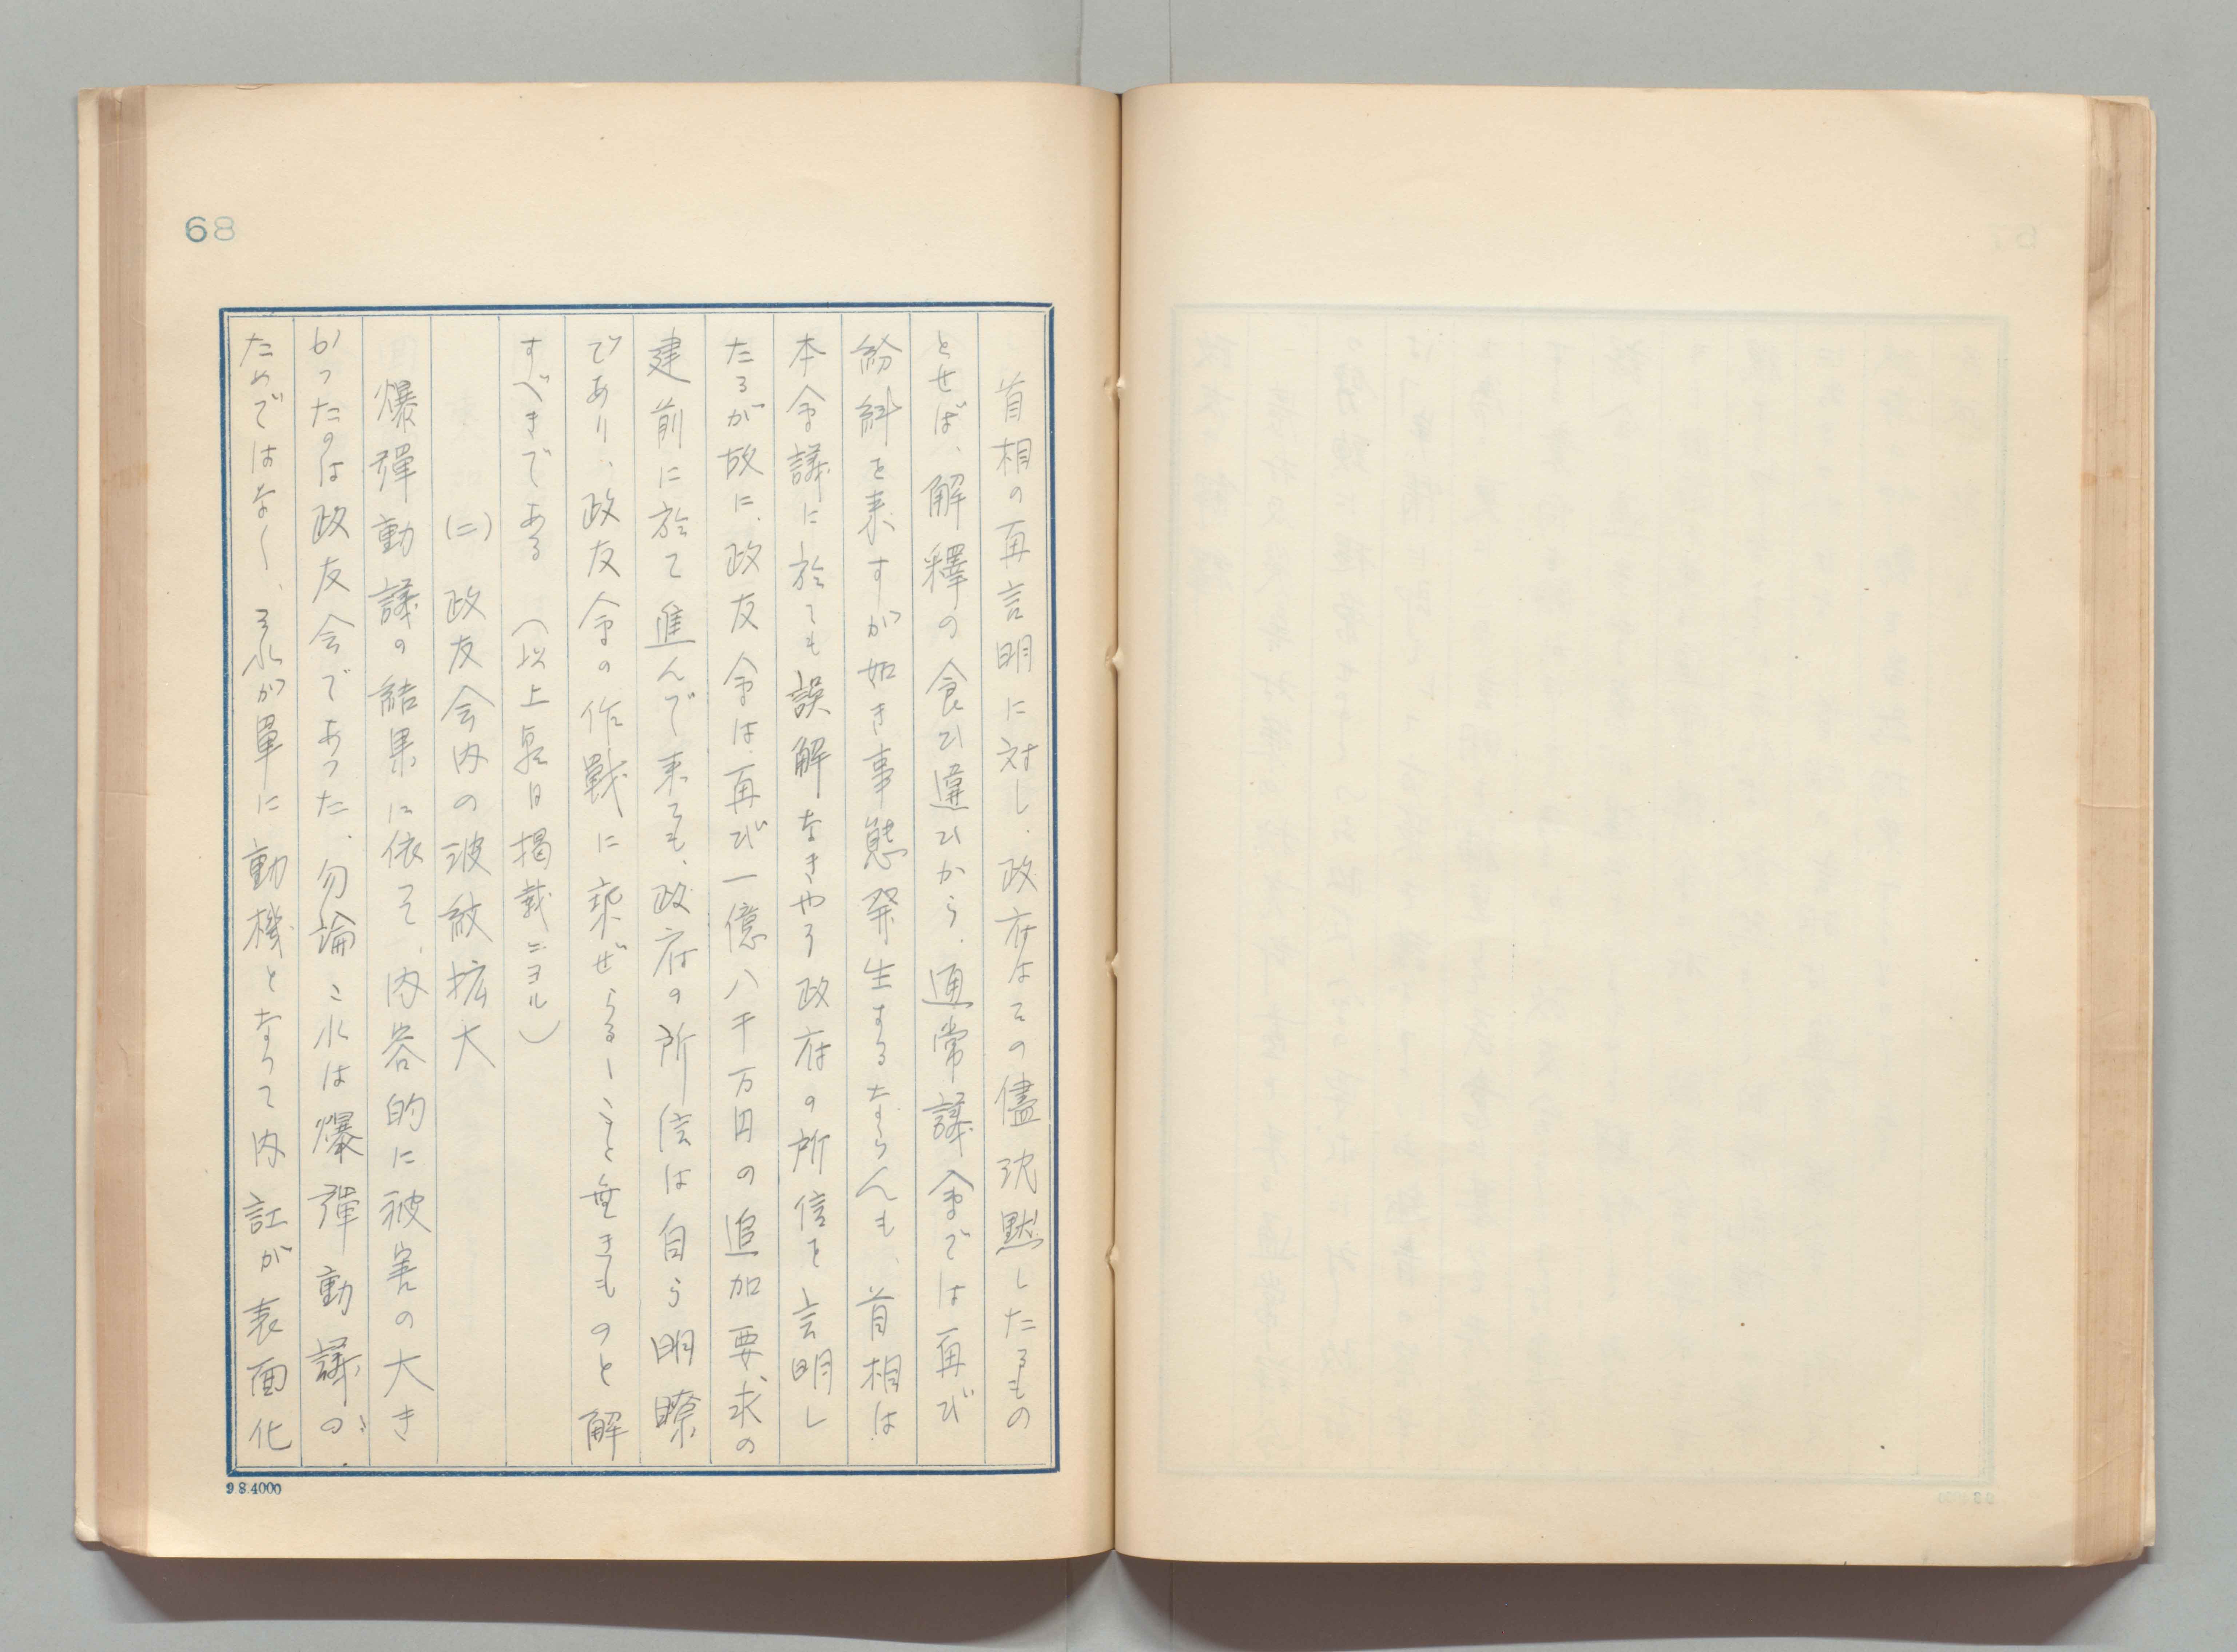 68
首相の再言明に対し、政府はその儘沈黙したるもの
とせば、解釋の食ひ違ひから、通常議会では再び
紛糾を来すが如き事態発生するならんも、首相は
本会議に於ても誤解なきやう政府の所信を言明し
たるが故に、政友会は再び一億八千万円の追加要求の
建前に於て進んで来ても、政府の所信は自ら明瞭
であり、政友会の作戦に乗ぜらるゝこと無きものと解
すべきである　(以上 日掲載ニヨル)
(二)　政友会内の波紋拡大
爆彈動議の結果に依て、内容的に被害の大き
かったのは政友会であった、勿論これは爆彈動議の
ためではなく、それが単に動機となって内訌が表面化
9 8.4000